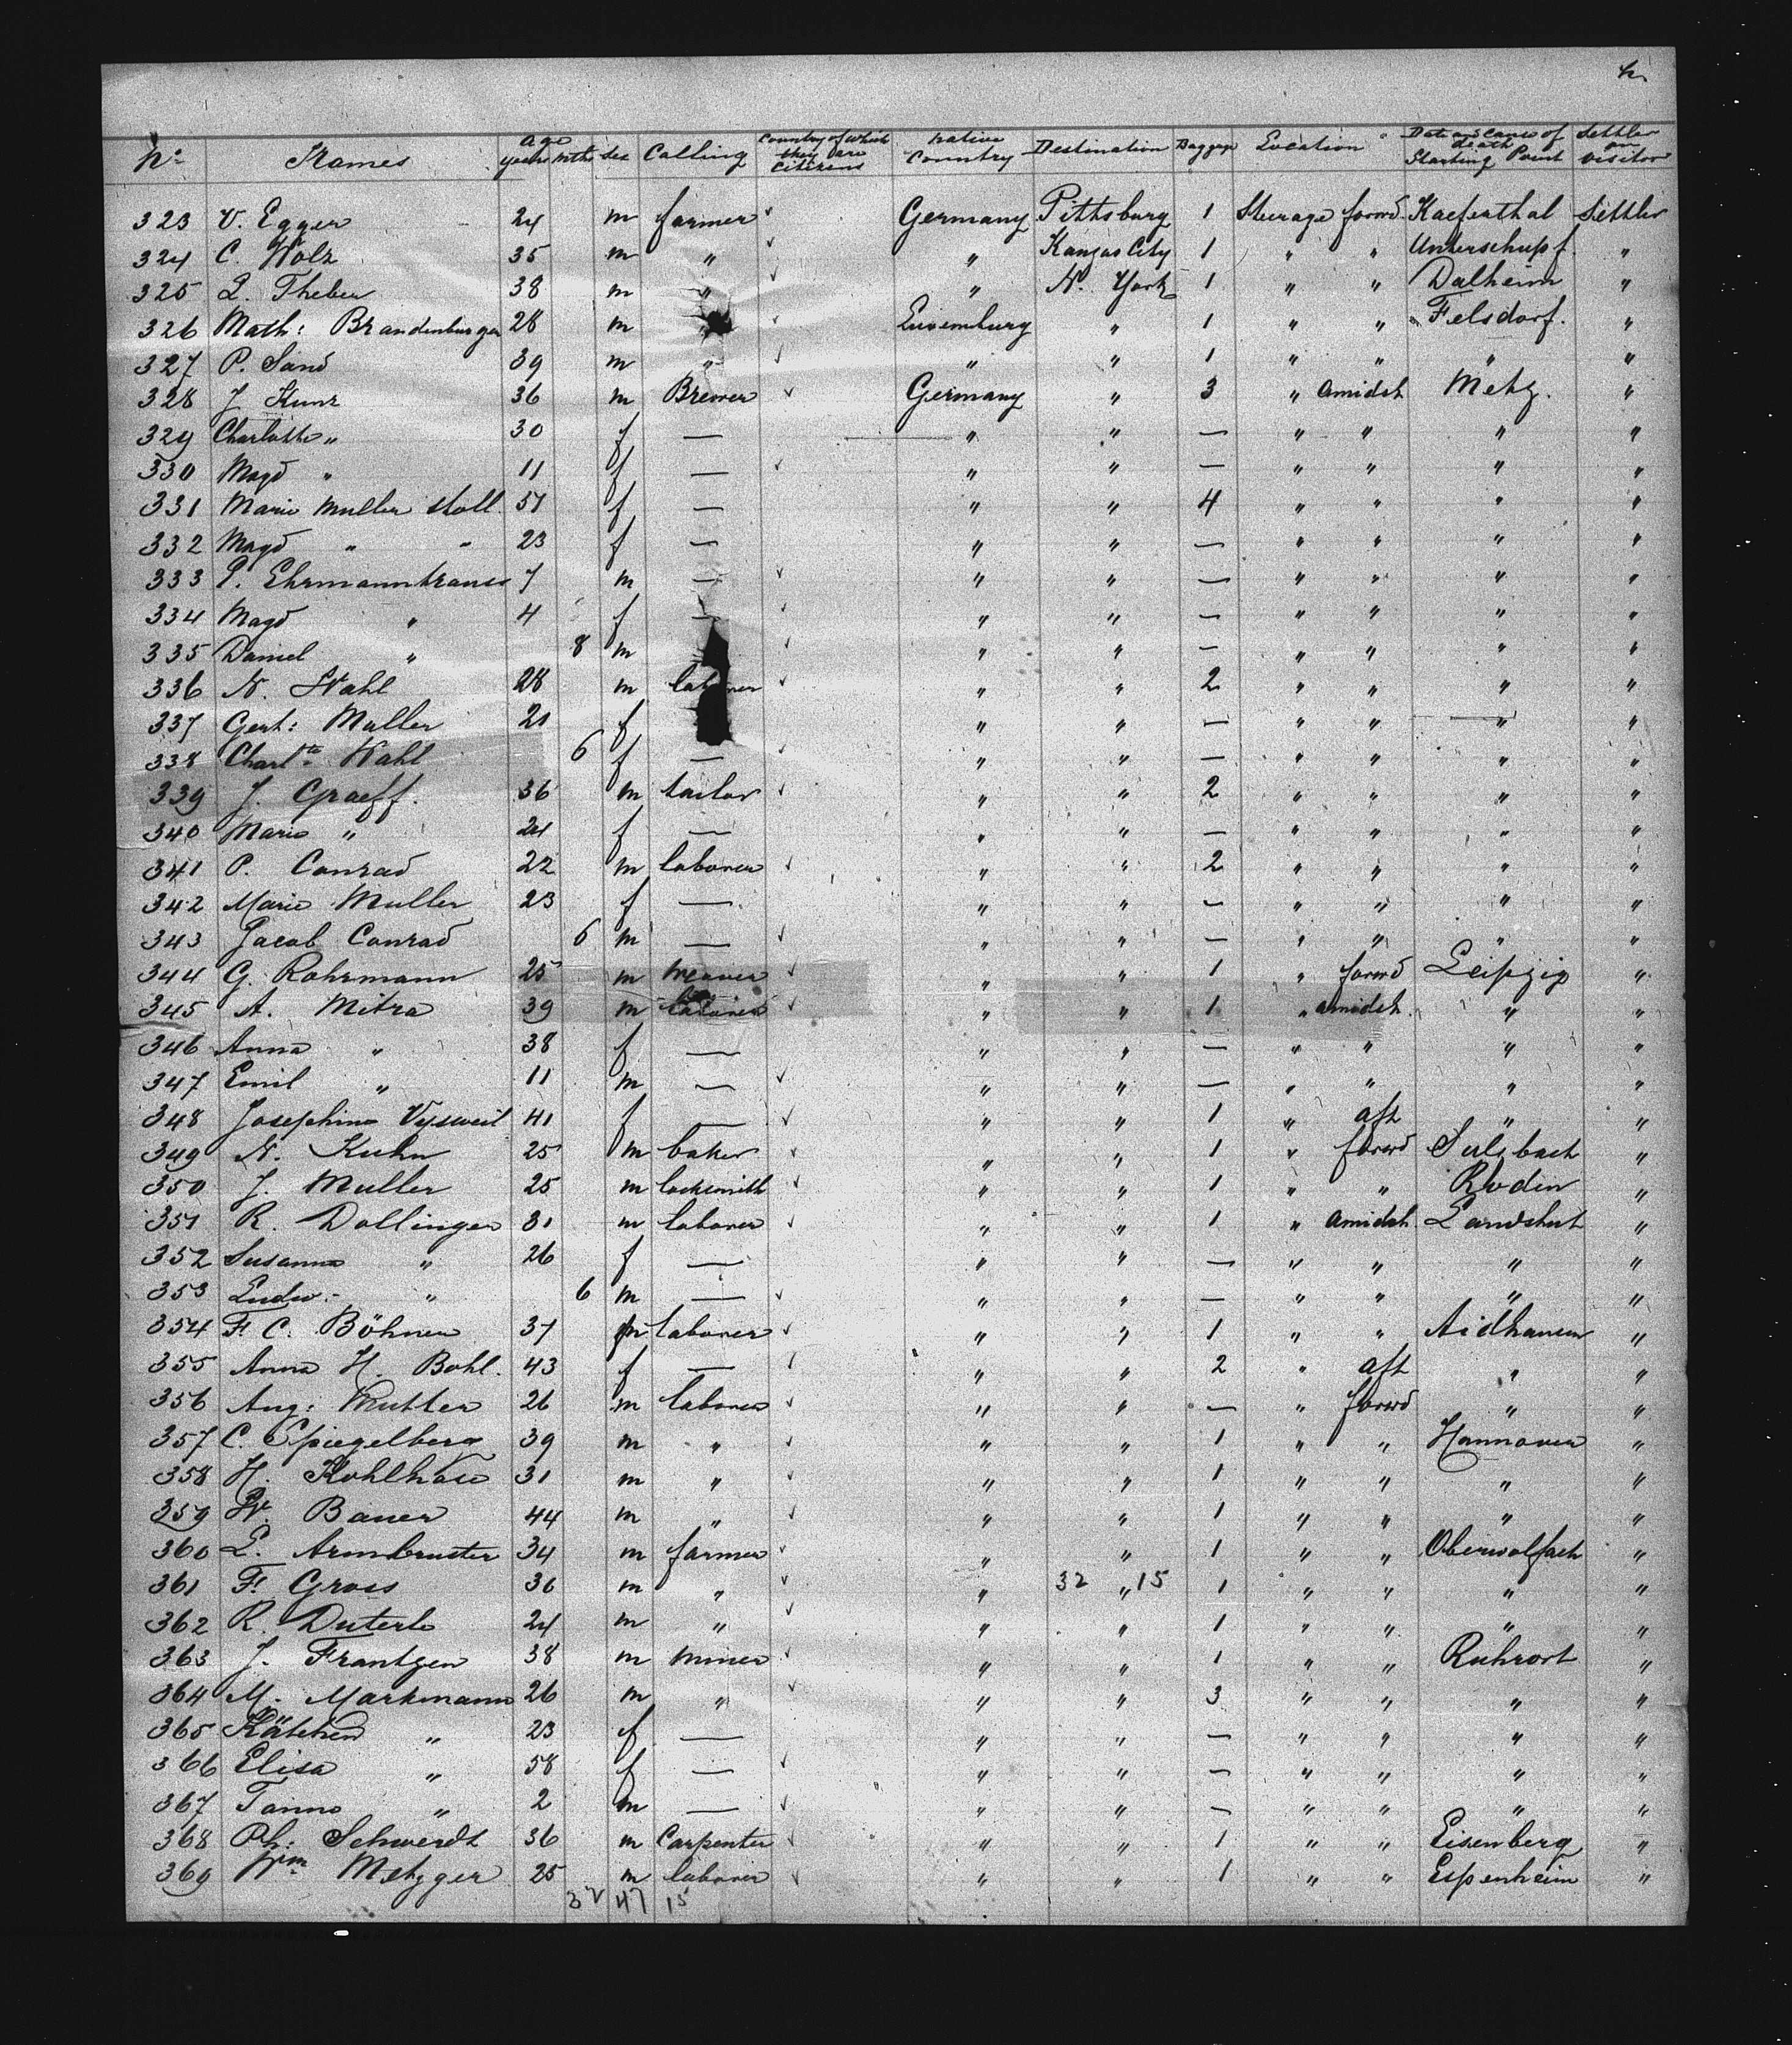 No Names Age years mths Sex Calling Country of which they are citizens Native Country Destination Baggage Location Date and cause of death Starting Point Settler or visitor
323 V. Egger 24 m farmer Germany Pittsburg 1 Steerage forwd Kaeferthal Settler
324 C. Wolz 35 m " " Kansas City 1 " " Unterschupf. "
325 L. Theber 38 m " " N. York 1 " " Dalheim "
326 Math: Brandenburger 28 m " Luxemburg " 1 " " Felsdorf. "
327 P. Sand 39 m " " " 1 " " " "
328 J Kunz 36 m Brewer Germany " 3 " amidsh Metz. "
329 Charlotte " 30 f — " " — " " " "
330 Magd " 11 f — " " — " " " "
331 Marie Muller Stoll 51 f — " " 4 " " " "
332 Magd " " 23 f — " " — " " " "
333 P. Ehrmanntrauss 7 m — " " — " " " "
334 Magd " 4 f — " " — " " " "
335 Daniel " 8 m " " — " " " "
336 N. Wahl 28 m laborer " " 2 " " " "
337 Gert: Muller 21 f " " — " " " "
338 Charltte Wahl 6 f — " " — " " " "
339 J. Graeff. 36 m tailor " " 2 " " " "
340 Marie " 24 f — " " — " " " "
341 P. Conrad 22 m laborer " " 2 " " " "
342 Marie Muller 23 f — " " — " " " "
343 Jacob Conrad 6 m — " " — " " " "
344 G. Rohrmann 25 m weaver " " 1 " forwd Leipzig "
345 A. Mitra 39 m laborer " " 1 " amidsh. " "
346 Anna " 38 f — " " — " " " "
347 Emil " 11 m — " " — " " " "
348 Josephine 41 f — " " 1 " aft " "
349 N. Kuhn 25 m baker " " 1 " forwd Sulzbach "
350 J. Muller 25 m locksmith " " 1 " " Rhoden "
351 R. Dollinger 31 m laborer " " 1 " amidsh. Landshut "
352 Susanna " 26 f — " " — " " " "
353 Ludw:- " 6 m — " " — " " " "
354 F. C. Böhner 37 m laborer " " 1 " " Aidhausen "
355 Anna H. Bohl. 43 f — " " 2 " aft " "
356 Aug: Mutter 26 m laborer " " — " forwd " "
357 C. Spiegelberg 39 m " " " 1 " " Hannover "
358 H. Kohlhase 31 m " " " 1 " " " "
359 W. Bauer 44 m " " " 1 " " " "
360 L. Armbruster 34 m farmer " " 1 " " Oberwolfach "
361 F. Gross 36 m " " 32 " 15 1 " " " "
362 R. Duterle 24 m " " " 1 " " " "
363 J. Frantzen 38 m miner " " 1 " " Ruhrort "
364 M. Markmann 26 m " " " 3 " " " "
365 Kätchen " 23 f — " " — " " " "
366 Elisa " 58 f — " " — " " " "
367 Tanno " 2 m — " " — " " " "
368 Ph: Schwerdt 36 m Carpenter " " 1 " " Eisenberg "
369 Wm Metzger 25 m laborer " " 1 " " Espenheim "
32 47 15